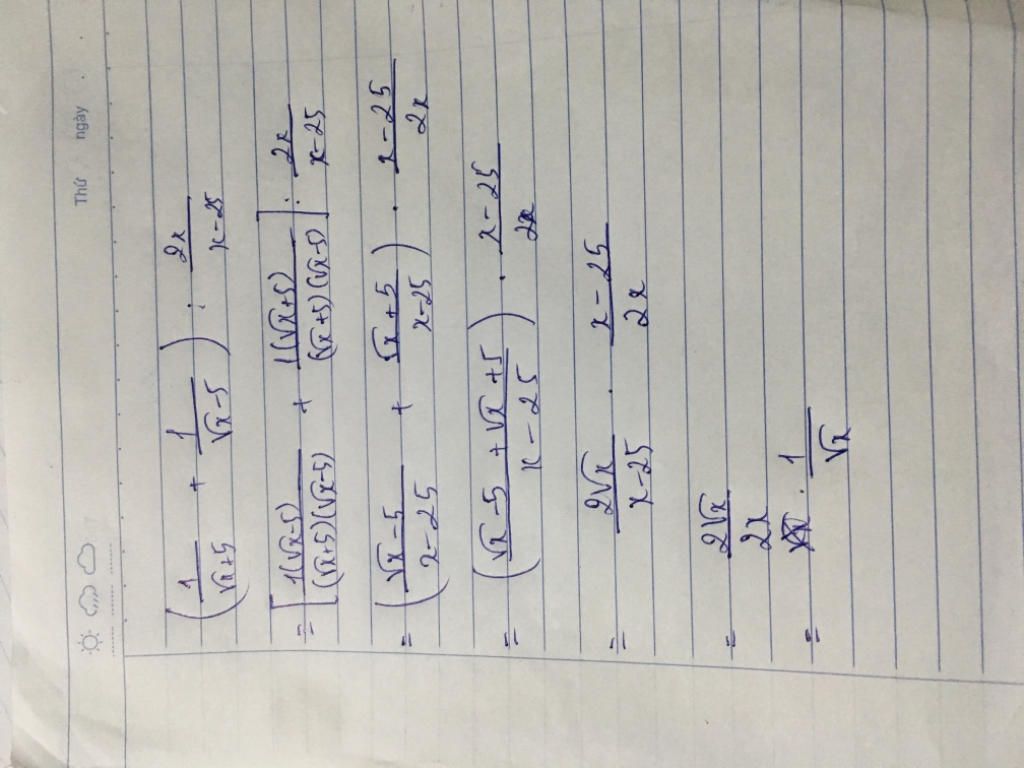 Thứ ngày
( 1/(√x+5) + 1/(√x-5) ) : 2x/(x-25)
= [ 1(√x-5)/((√x+5)(√x-5)) + 1(√x+5)/((√x+5)(√x-5)) ] : 2x/(x-25)
= ( (√x-5)/(x-25) + (√x+5)/(x-25) ) . (x-25)/2x
= ( (√x-5+√x+5)/(x-25) ) . (x-25)/2x
= 2√x/(x-25) . (x-25)/2x
= 2√x/2x
= . 1/√x